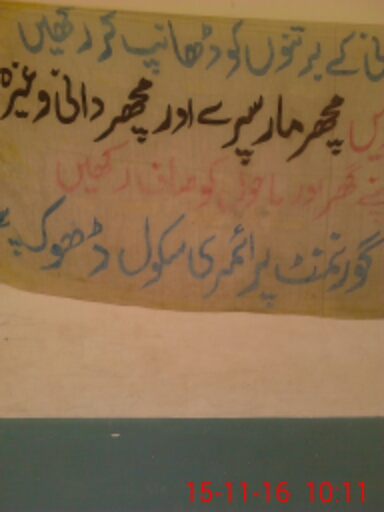 کے برتنوں کو ڈھانپ کر رکھیں
مچھر مار سپرے اور مچھر دانی وغیرہ
گھر اور ماحول کو صاف رکھیں
گورنمنٹ پرائمری سکول ڈھوک
15-11-16 10:11